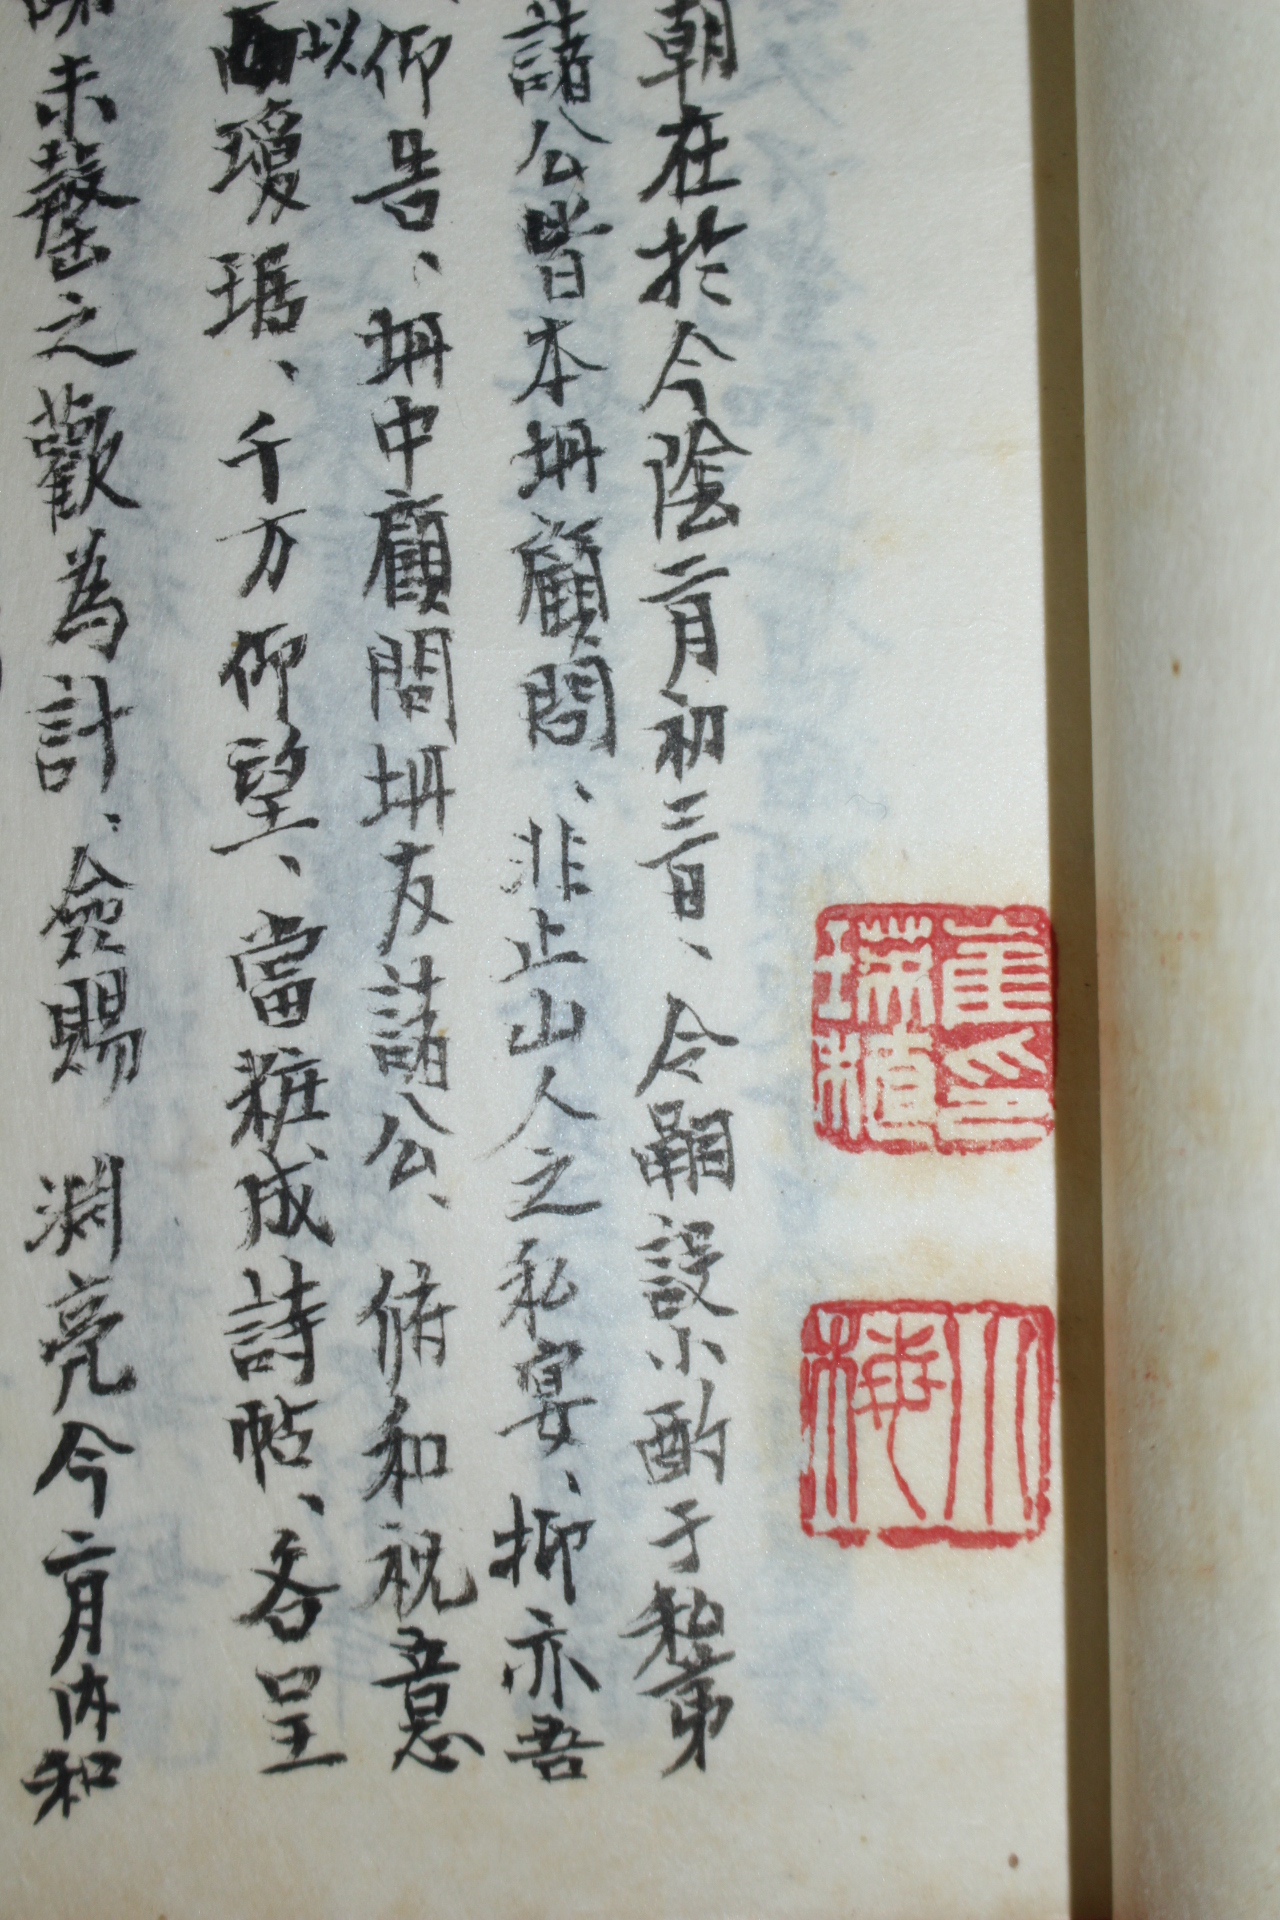 崔印
瑞植
小
梅
朝在於今陰二月初三日、今嗣設小酌于私第
諸公皆本坍顧問、非止山人之私宴、抑亦吾
仰告、坍中顧問坍友諸公、俯和祝意
以瓊琚、千万仰望、當粧成詩帖、各呈
未罄之歡為計、僉賜 渊亮今二月内和